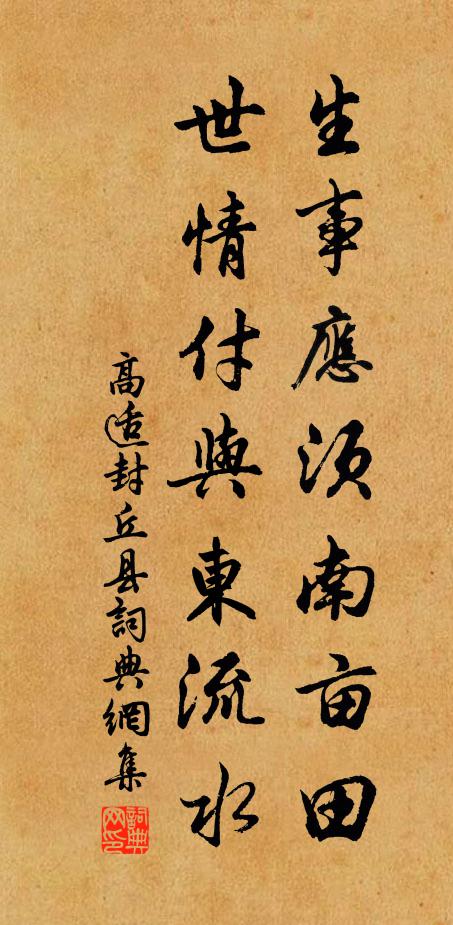 生事應須南亩田
世情付與東流水
高适封丘县詞典網集
詞典网印